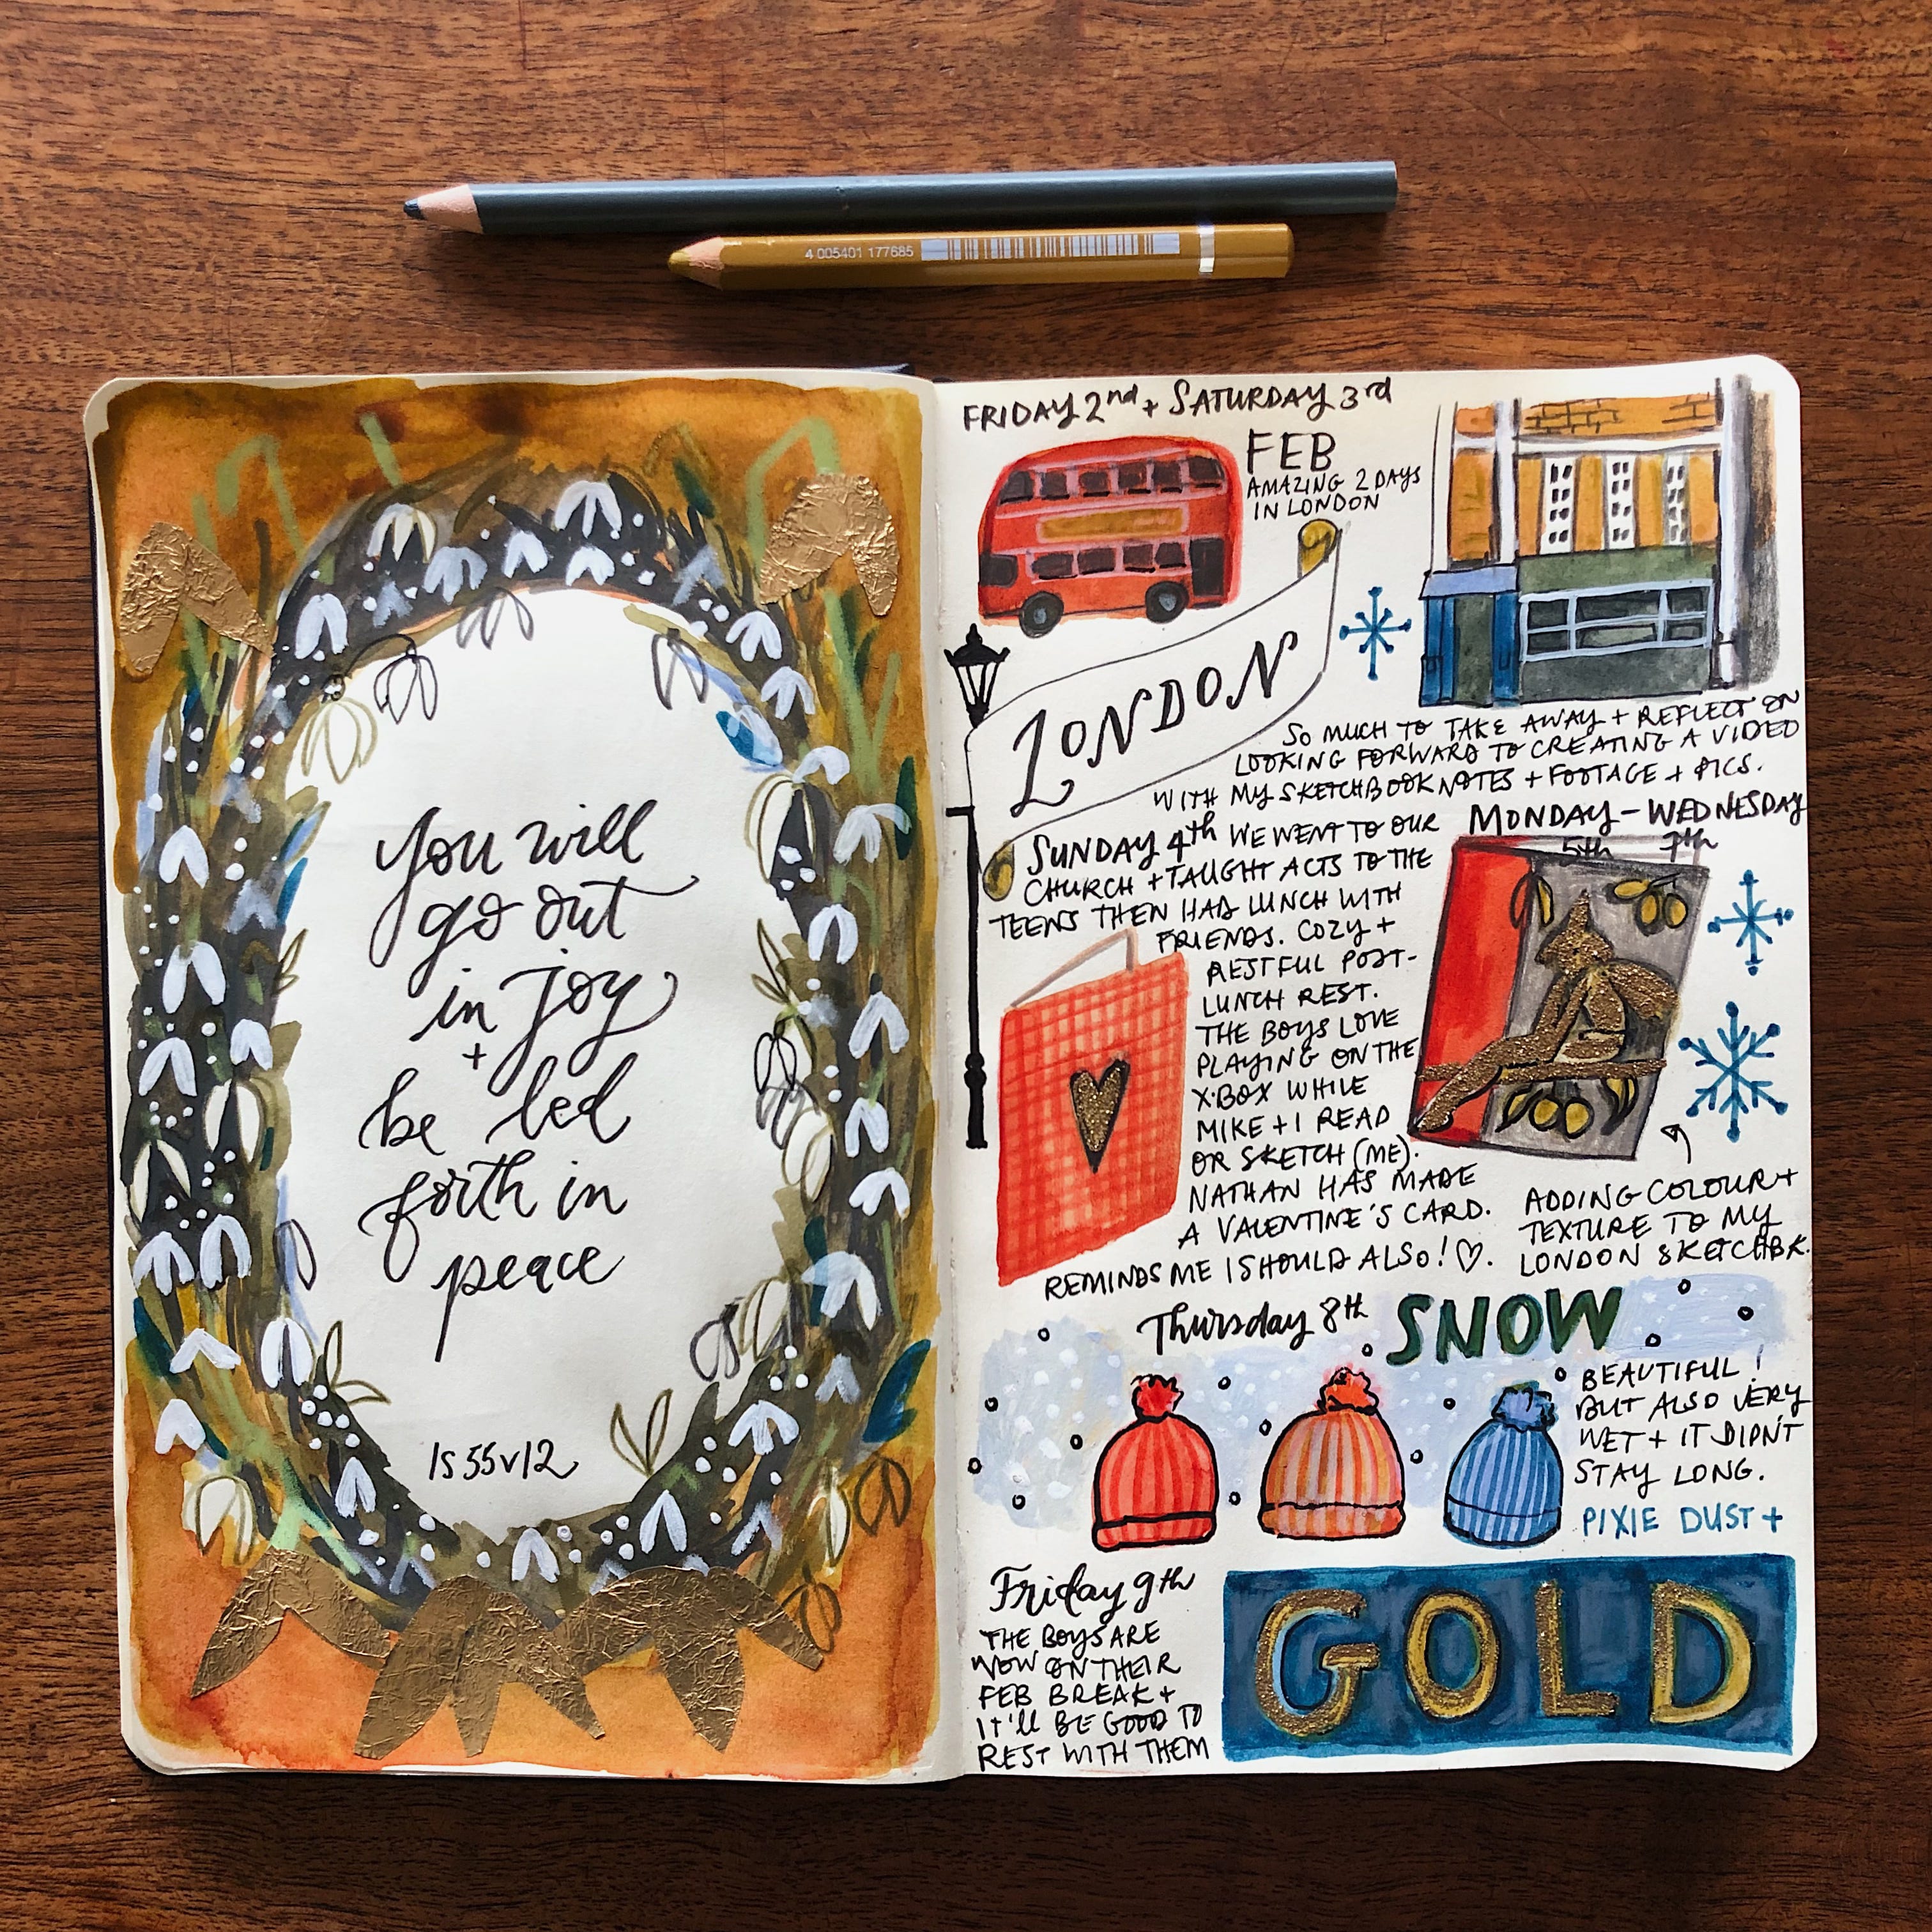 4 005401 177685
you will
go out
in joy
+
be led
forth in
peace
Is 55v12
FRIDAY 2nd + SATURDAY 3rd
FEB
AMAZING 2 DAYS
IN LONDON
LONDON
SO MUCH TO TAKE AWAY + REFLECT ON
LOOKING FORWARD TO CREATING A VIDEO
WITH MY SKETCHBOOK NOTES + FOOTAGE + PICS.
SUNDAY 4th WE WENT TO OUR
CHURCH + TAUGHT ACTS TO THE
TEENS THEN HAD LUNCH WITH
FRIENDS. COZY +
RESTFUL POST-
LUNCH REST.
THE BOYS LOVE
PLAYING ON THE
X-BOX WHILE
MIKE + I READ
OR SKETCH (ME).
NATHAN HAS MADE
A VALENTINE'S CARD.
REMINDS ME I SHOULD ALSO! ♡.
MONDAY - WEDNESDAY
5th 7th
ADDING COLOUR +
TEXTURE TO MY
LONDON SKETCHBK.
Thursday 8th SNOW
BEAUTIFUL!
BUT ALSO VERY
WET + IT DIDN'T
STAY LONG.
PIXIE DUST +
GOLD
Friday 9th
THE BOYS ARE
NOW ON THEIR
FEB BREAK +
IT'll BE GOOD TO
REST WITH THEM